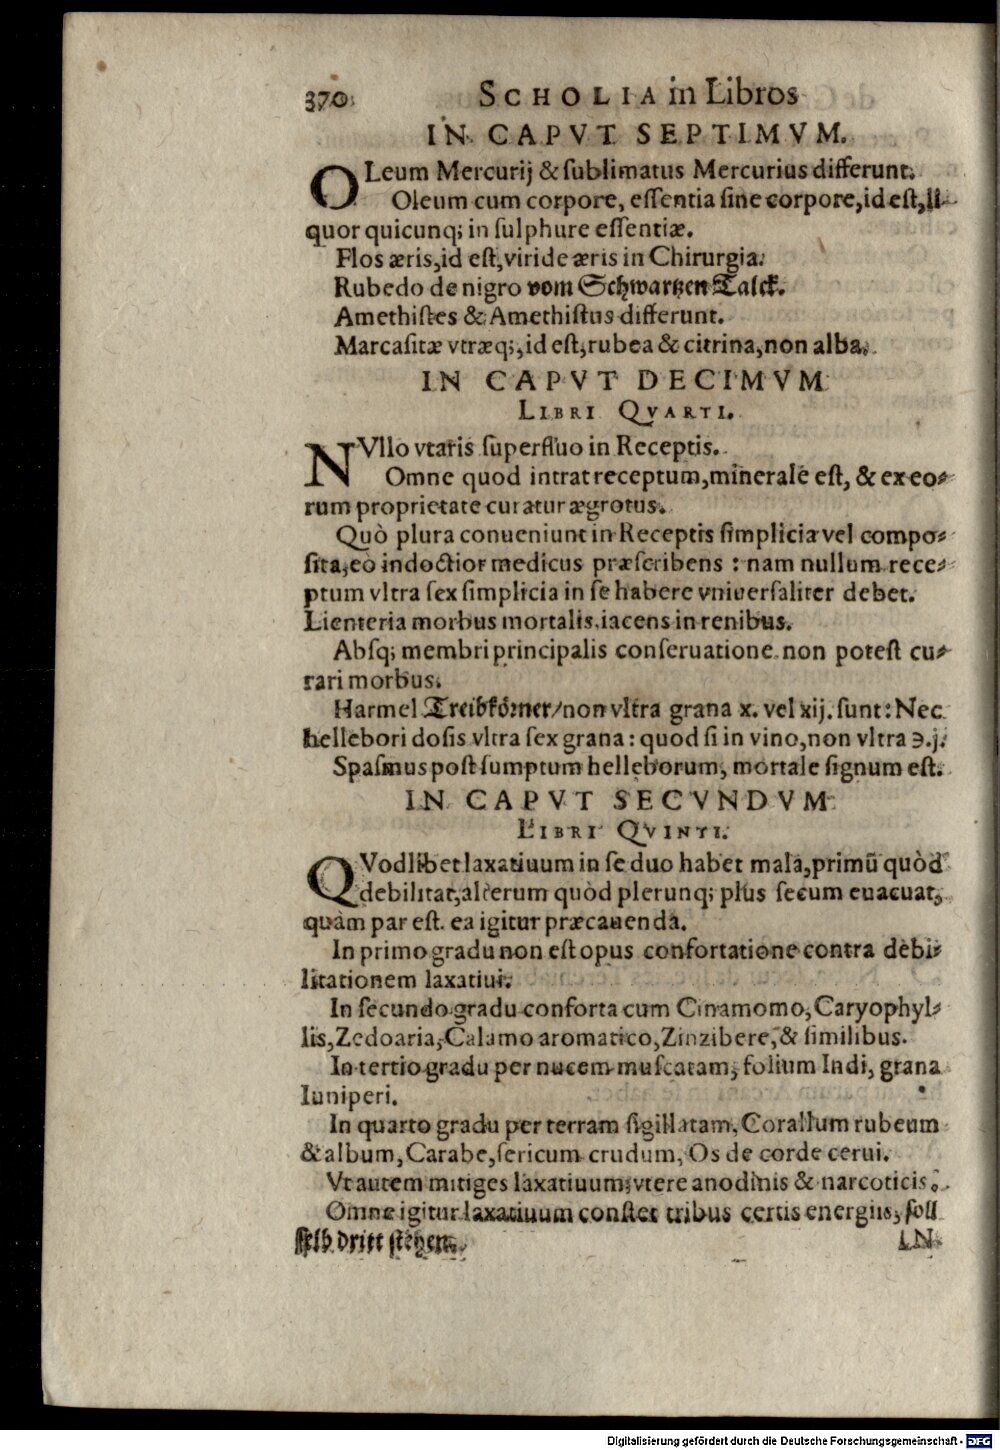 370 SCHOLIA in Libros
IN CAPVT SEPTIMVM.
OLeum Mercurij & ſublimatus Mercurius differunt.
Oleum cum corpore, eſſentia ſine corpore, id eſt, li-
quor quicunq; in ſulphure eſſentiæ.
Flos æris, id eſt, viride æris in Chirurgia.
Rubedo de nigro vom Schwartzen Talck.
Amethiſtes & Amethiſtus differunt.
Marcaſitæ vtræq;, id eſt, rubea & citrina, non alba.
IN CAPVT DECIMVM
LIBRI QVARTI.
NVllo vtaris ſuperfluo in Receptis.
Omne quod intrat receptum, minerale eſt, & ex eo-
rum proprietate curatur ægrotus.
Quò plura conueniunt in Receptis ſimplicia vel compo-
ſita, eò indoctior medicus præſcribens: nam nullum rece-
ptum vltra ſex ſimplicia in ſe habere vniuerſaliter debet.
Lienteria morbus mortalis iacens in renibus.
Abſq; membri principalis conſeruatione non poteſt cu-
rari morbus.
Harmel Treibkörner/ non vltra grana x. vel xij. ſunt: Nec
hellebori doſis vltra ſex grana: quod ſi in vino, non vltra ℈.j.
Spaſmus poſt ſumptum helleborum, mortale ſignum eſt.
IN CAPVT SECVNDVM
LIBRI QVINTI.
QVodlibet laxatiuum in ſe duo habet mala, primũ quòd
debilitat, alterum quòd plerunq; plus ſecum euacuat,
quàm par eſt. ea igitur præcauenda.
In primo gradu non eſt opus confortatione contra debi-
litationem laxatiui.
In ſecundo gradu conforta cum Cinamomo, Caryophyl-
lis, Zedoaria, Calamo aromatico, Zinzibere, & ſimilibus.
In tertio gradu per nucem muſcatam, folium Indi, grana
Iuniperi.
In quarto gradu per terram ſigillatam, Corallum rubeum
& album, Carabe, ſericum crudum, Os de corde cerui.
Vt autem mitiges laxatiuum, vtere anodinis & narcoticis.
Omne igitur laxatiuum conſtet tribus certis energiis, ſoll
ſelb dritt ſtehen.
IN